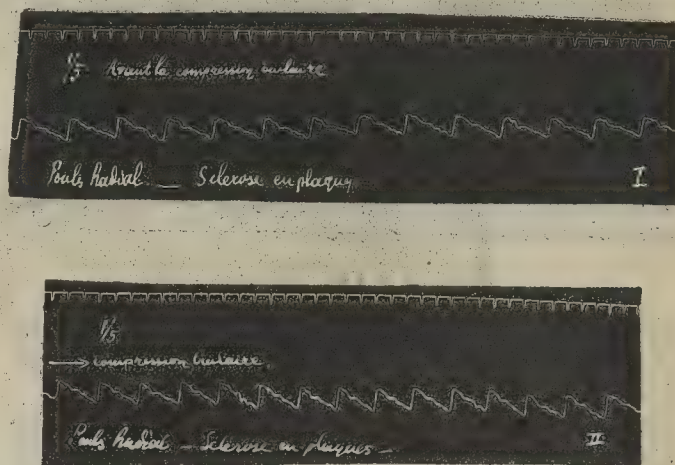 1/5 Avant la compression oculaire
Pouls Radial — Sclerose en plaques
I
1/5
→ compression oculaire
Pouls Radial — Sclerose en plaques —
II